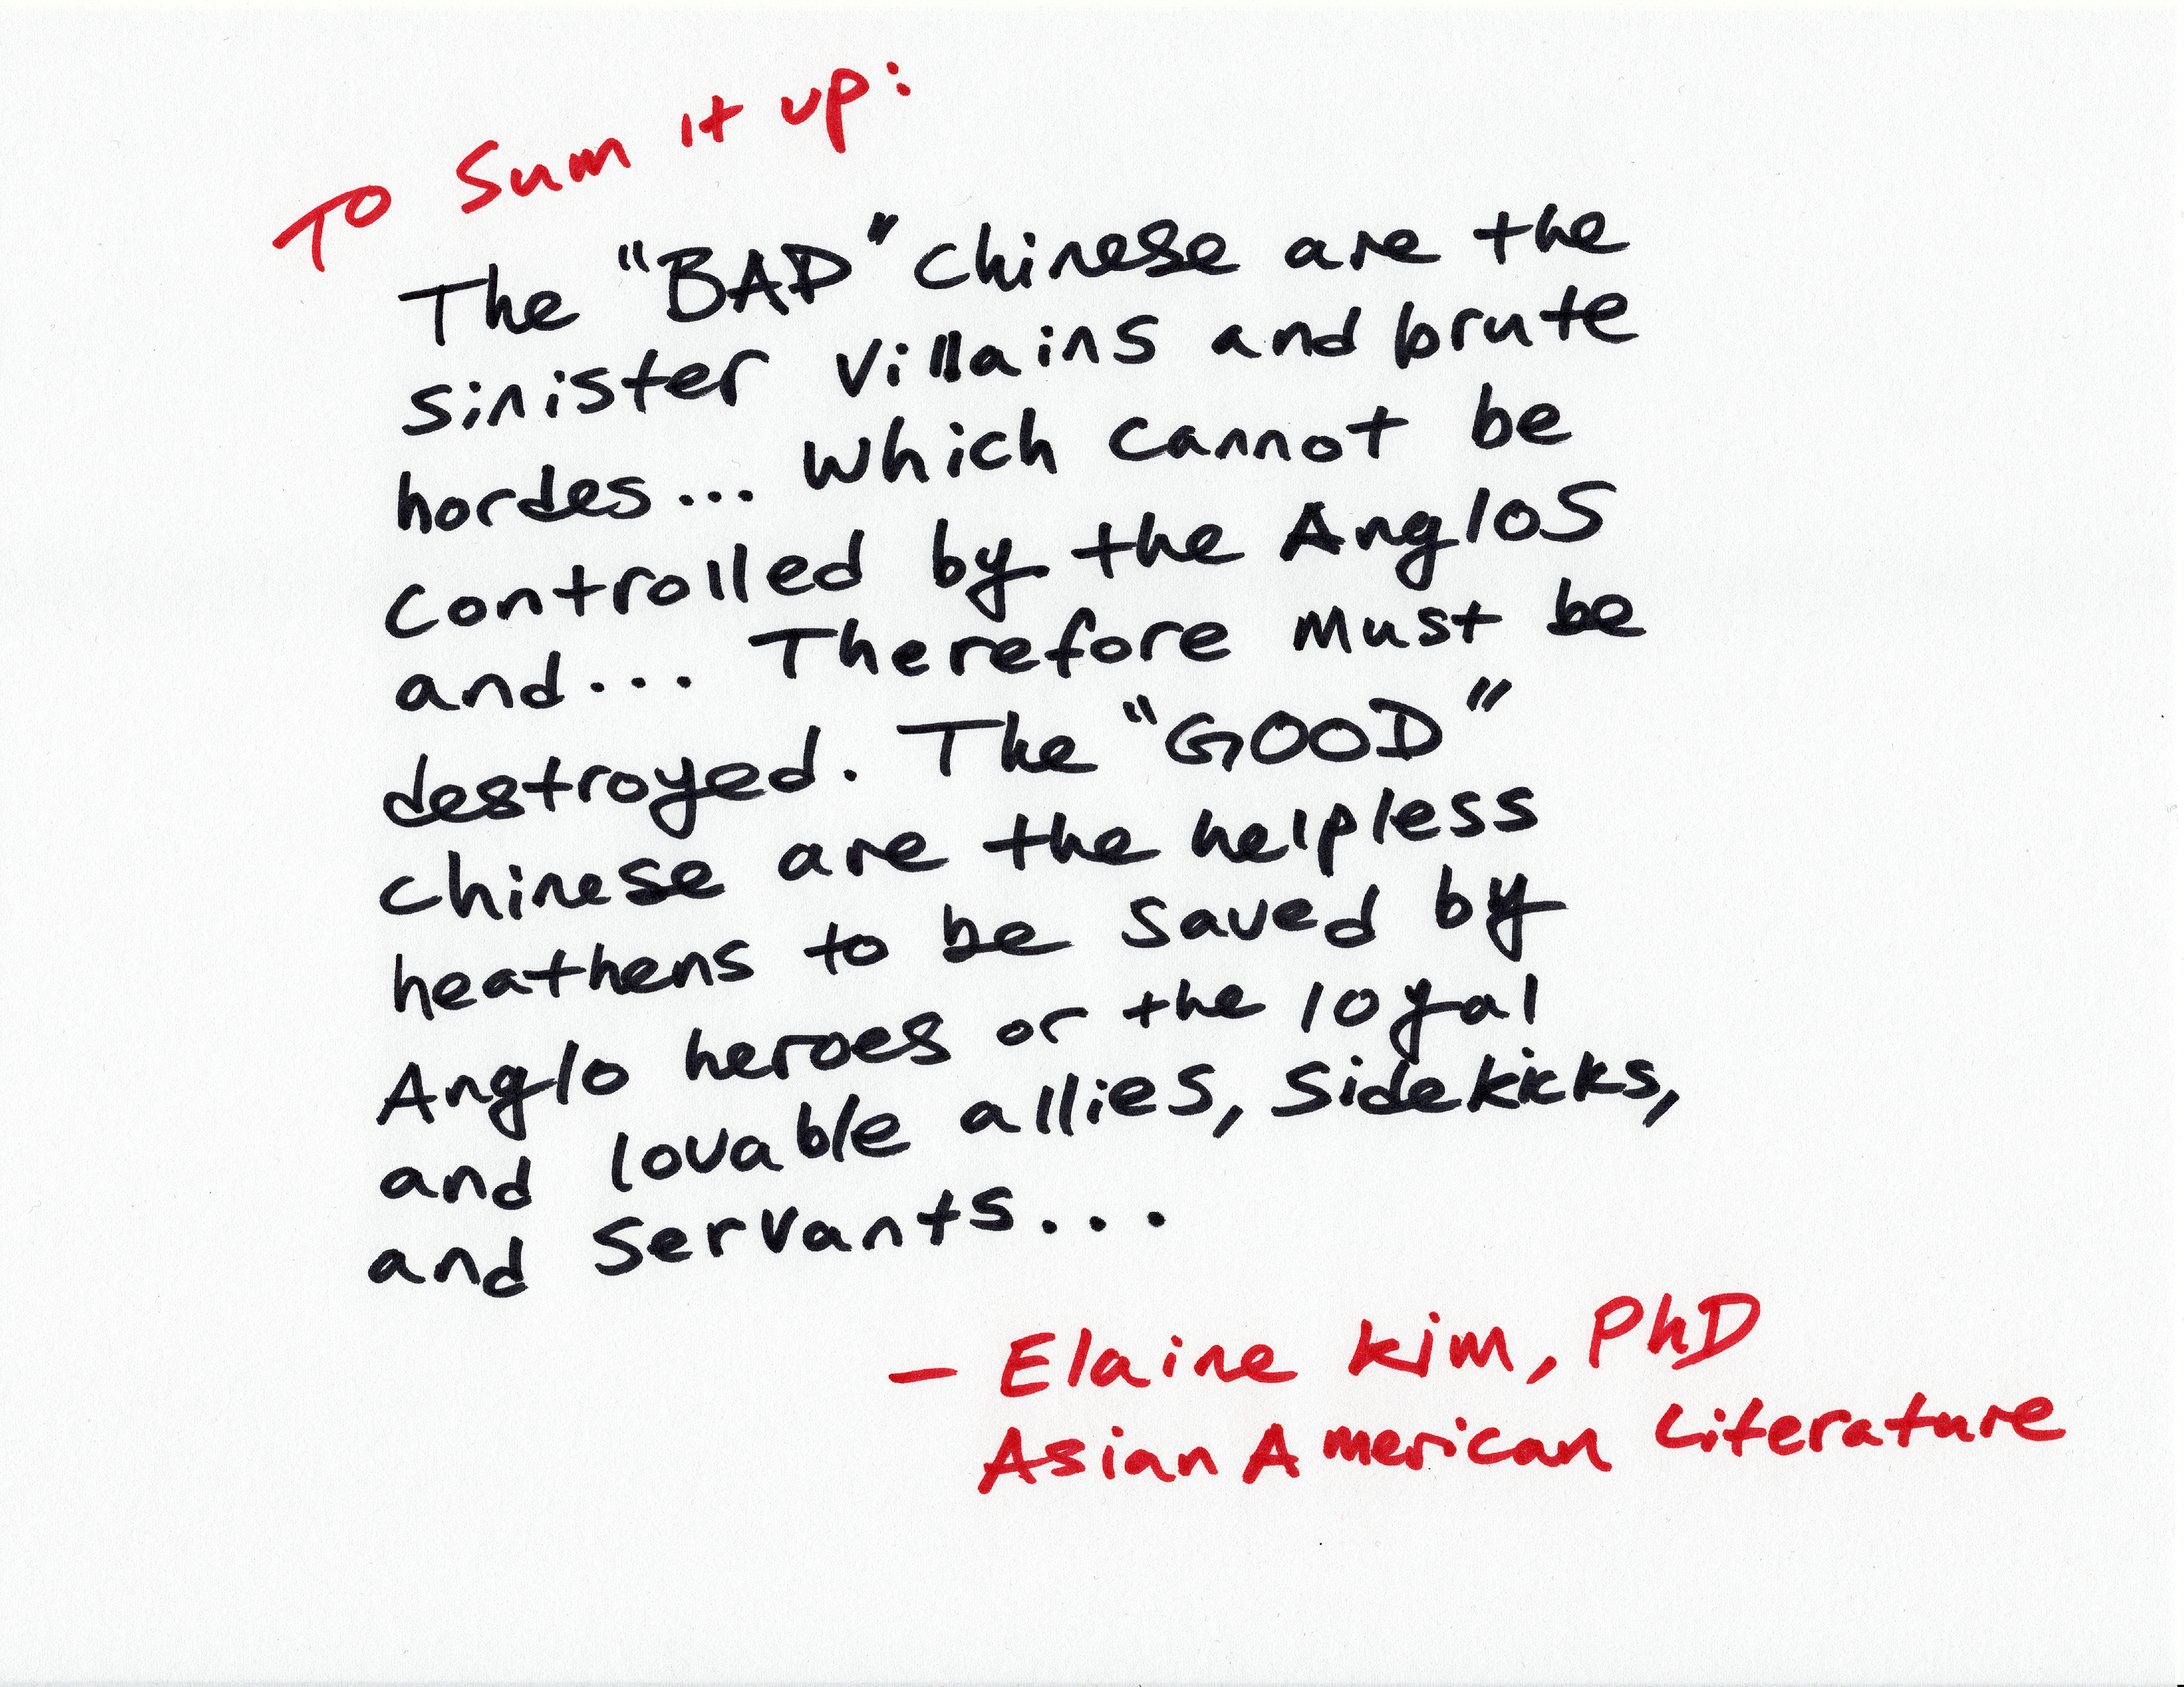 To Sum it up:
The "BAD" chinese are the
sinister villains and brute
hordes... which cannot be
controlled by the AngloS
and... Therefore must be
destroyed. The "GOOD"
chinese are the helpless
heathens to be saved by
Anglo heroes or the loyal
and lovable allies, sidekicks,
and servants...
— Elaine Kim, PhD
Asian American Literature